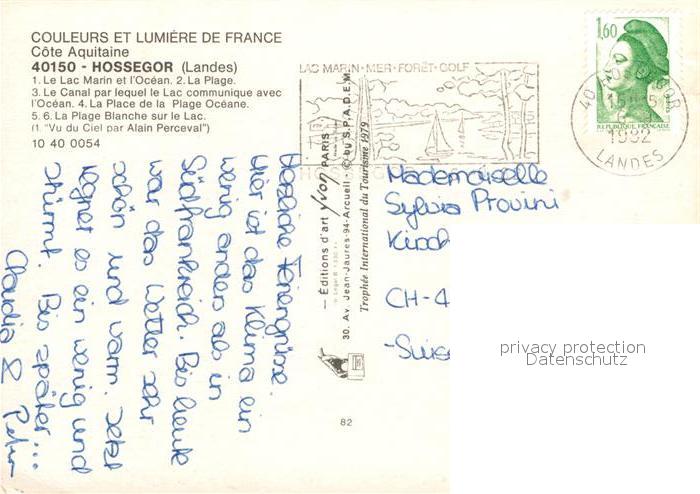 COULEURS ET LUMIÈRE DE FRANCE
Côte Aquitaine
40150 - HOSSEGOR (Landes)
1. Le Lac Marin et l'Océan. 2. La Plage.
3. Le Canal par lequel le Lac communique avec
l'Océan. 4. La Place de la Plage Océane.
5. 6. La Plage Blanche sur le Lac.
(1 "Vu du Ciel par Alain Perceval")
10 40 0054
LAC MARIN-MER-FORÊT-GOLF
1,60
REPUBLIQUE FRANÇAISE
1982
LANDES
Herzliche Feriengrüsse.
Hier ist das Klima ein
wenig anders als in
Südfrankreich. Bis heute
war das Wetter sehr
schön und warm. Jetzt
regnet es ein wenig und
stürmt. Bis später...
Claudia & Peter
— Éditions d'art Yvon PARIS
30. Av. Jean-Jaurès-94-Arcueil - © by S.P.A.D.E.M.
Trophée International du Tourisme 1979
Mademoiselle
Sylvia Provini
Kirch
CH-4
-Suis
82
privacy protection
Datenschutz